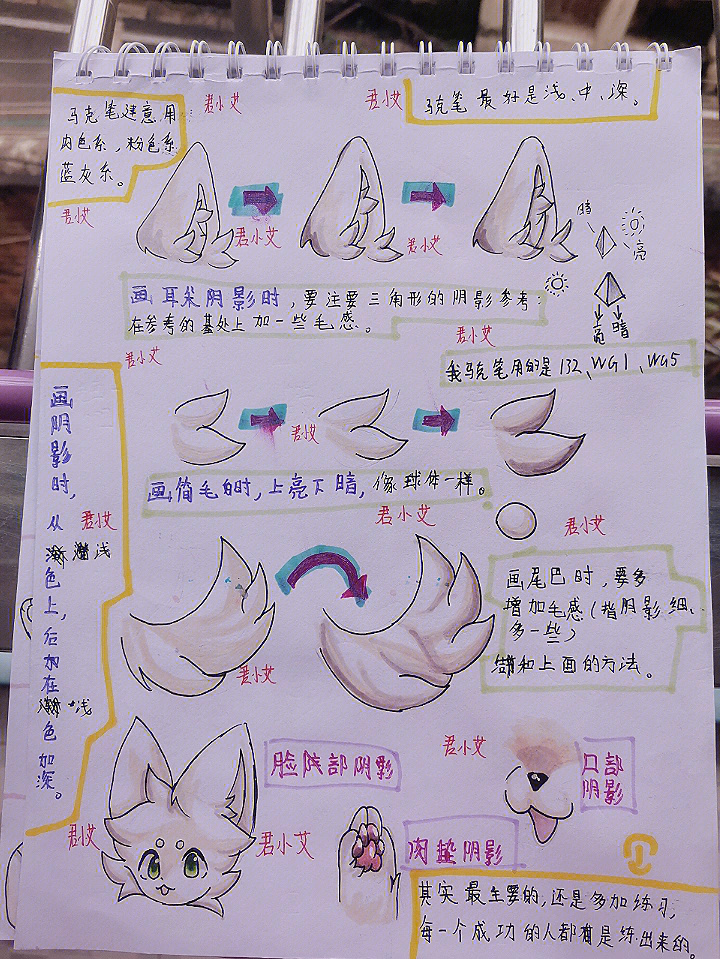 马克笔建意用
肉色系，粉色系
蓝灰系。
君小艾
君小艾
马克笔最好是浅、中、深。
君小艾
君小艾
君小艾
暗
亮
画耳朵阴影时，要注要三角形的阴影参考
在参考的基处上加一些毛感。
亮 暗
君小艾
君小艾
我马克笔用的是132、WG1、WG5
君小艾
画简毛时，上亮下暗，像球体一样。
画阴影时，从
浅色上，后加在
浅色加深。
君小艾
君小艾
君小艾
画尾巴时，要多
增加毛感（指阴影细、
多一些）
和上画的方法。
君小艾
脸阴影
君小艾
口部
阴影
君小艾
君小艾
肉垫阴影
其实最主要的，还是多加练习，
每一个成功的人都是练出来的。